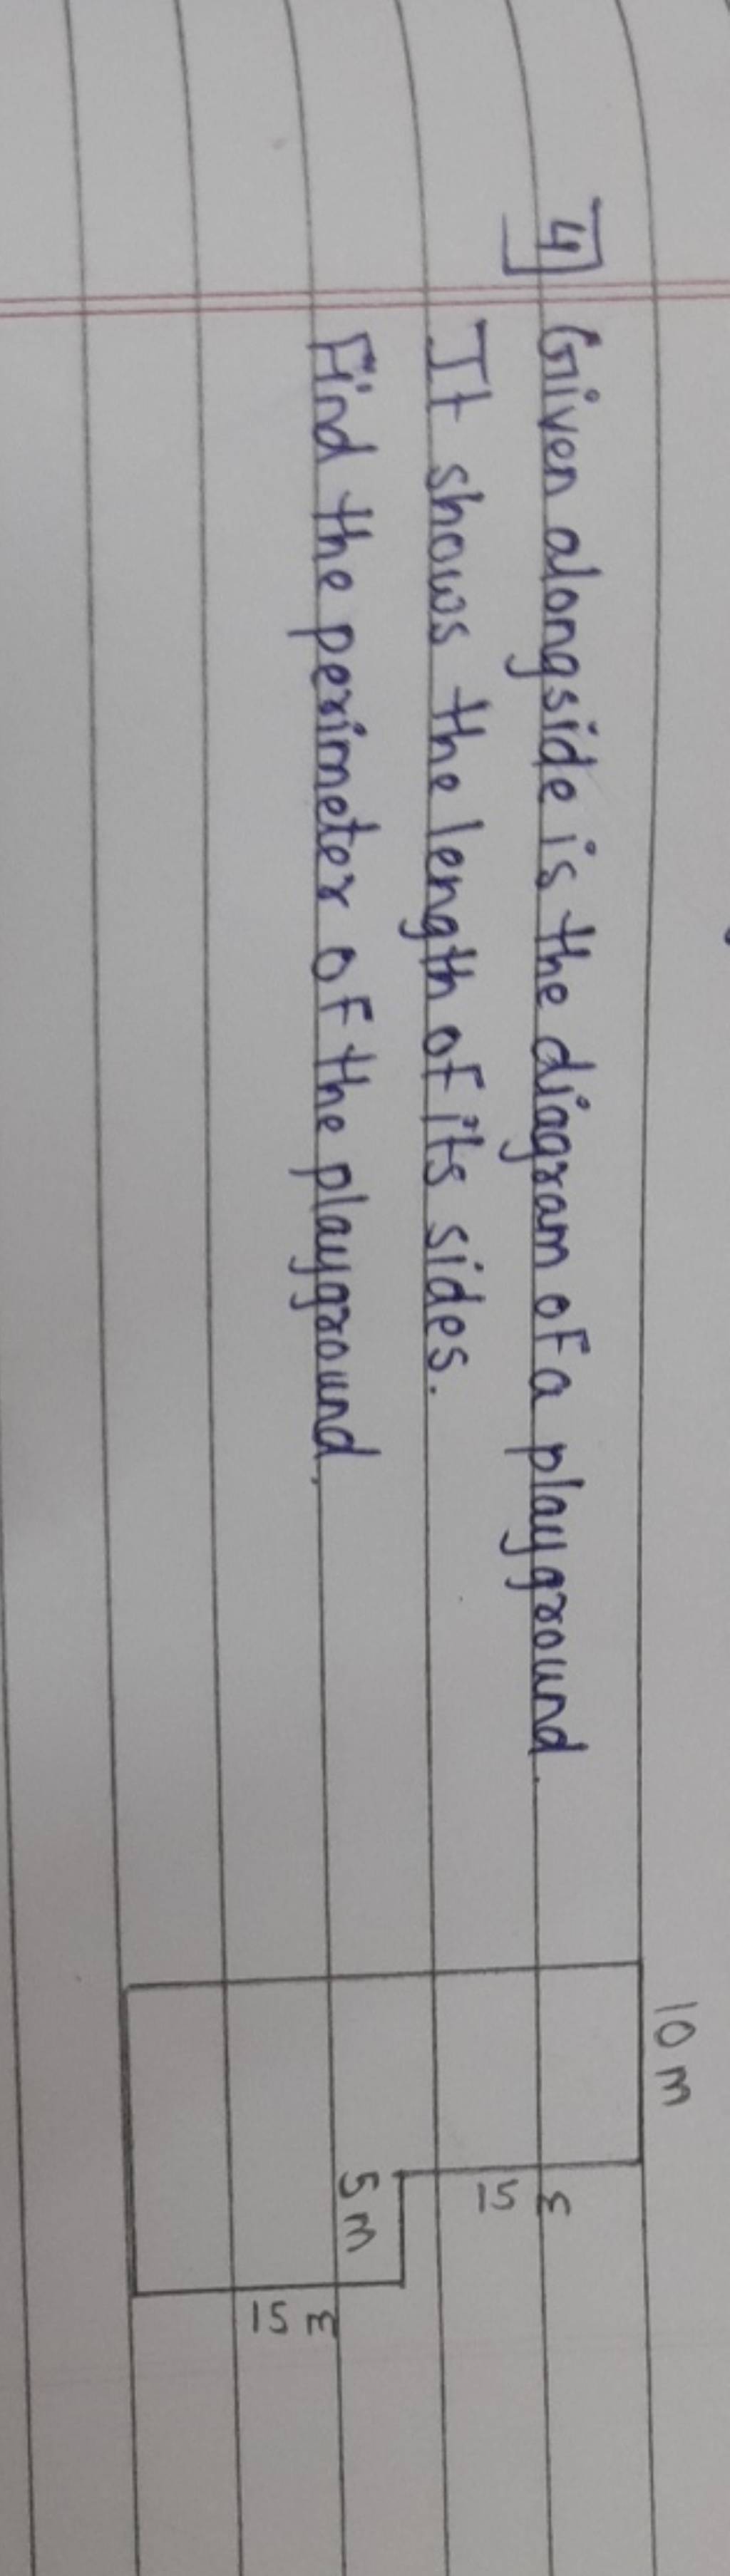 4 Given alongside is the diagram of a playground.
It shows the length of its sides.
Find the perimeter of the playground.
10 m
15 m
5 m
15 m